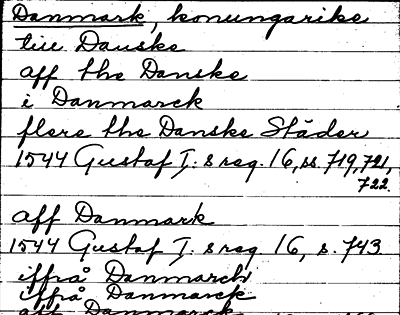 Danmark, konungarike
till Danske
aff the Danske
i Danmarck
flere the Danske Städer
1544 Gustaf I:s reg. 16, ss. 719, 721,
722
aff Danmark
1544 Gustaf I:s reg 16, s. 743
iffrå Danmarck
iffrå Danmarck
aff Danmarck